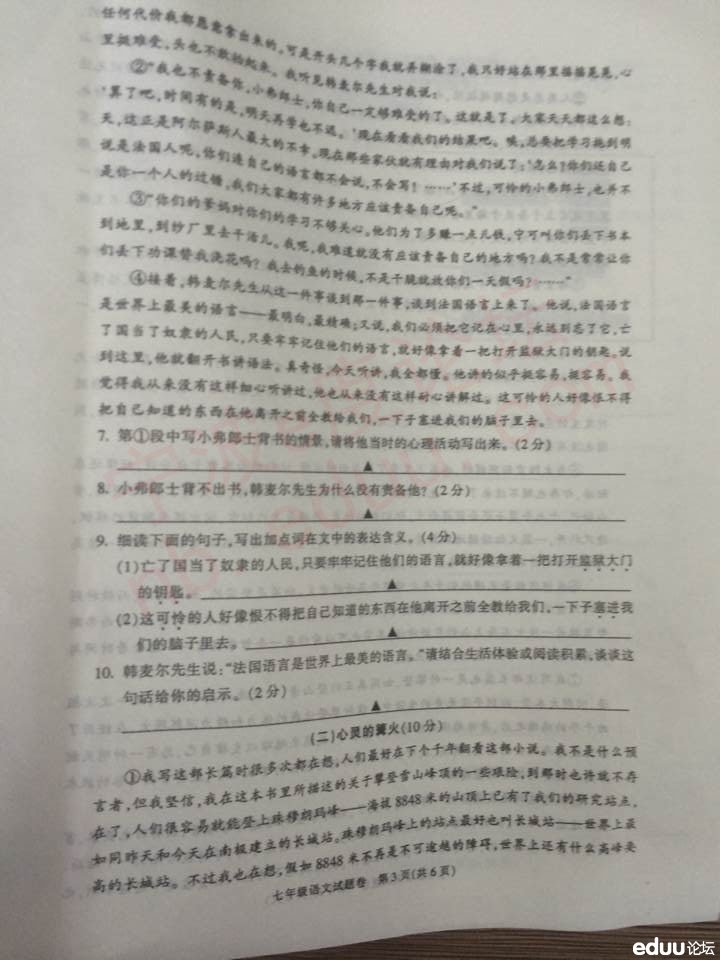 任何代价我都愿意拿出来的,可是开头几个字我就弄糊涂了,我只好站在那里摇摇晃晃,心
里挺难受,头也不敢抬起来。我听见韩麦尔先生对我说:
②“我也不责备你,小弗郎士,你自己一定够难受的了。这就是了。大家天天都这么想:
‘算了吧,时间有的是,明天再学也不迟。’现在看看我们的结果吧。唉,总要把学习拖到明
天,这正是阿尔萨斯人最大的不幸。现在那些家伙就有理由对我们说了:‘怎么?你们还自己
说是法国人呢,你们连自己的语言都不会说,不会写!……’不过,可怜的小弗郎士,也并不
是你一个人的过错,我们大家都有许多地方应该责备自己呢。”
③“你们的爹妈对你们的学习不够关心。他们为了多赚一点儿钱,宁可叫你们丢下书本
到地里,到纱厂里去干活儿。我呢,我难道就没有应该责备自己的地方吗?我不是常常让你
们丢下功课替我浇花吗?我去钓鱼的时候,不是干脆就放你们一天假吗?……”
④接着,韩麦尔先生从这一件事谈到那一件事,谈到法国语言上来了。他说,法国语言
是世界上最美的语言——最明白,最精确;又说,我们必须把它记在心里,永远别忘了它,亡
了国当了奴隶的人民,只要牢牢记住他们的语言,就好像拿着一把打开监狱大门的钥匙。说
到这里,他就翻开书讲语法。真奇怪,今天听讲,我全都懂。他讲的似乎挺容易,挺容易。我
觉得我从来没有这样细心听讲过,他也从来没有这样耐心讲解过。这可怜的人好像恨不得
把自己知道的东西在他离开之前全教给我们,一下子塞进我们的脑子里去。
7. 第①段中写小弗郎士背书的情景,请将他当时的心理活动写出来。(2分)
▲
8. 小弗郎士背不出书,韩麦尔先生为什么没有责备他?(2分)
▲
9. 细读下面的句子,写出加点词在文中的表达含义。(4分)
(1)亡了国当了奴隶的人民,只要牢牢记住他们的语言,就好像拿着一把打开监狱大门
的钥匙。▲
(2)这可怜的人好像恨不得把自己知道的东西在他离开之前全教给我们,一下子塞进我
们的脑子里去。▲
10. 韩麦尔先生说:“法国语言是世界上最美的语言。”请结合生活体验或阅读积累,谈谈这
句话给你的启示。(2分)
▲
(二)心灵的篝火(10分)
①我写这部长篇时很多次都在想,人们最好在下个千年翻看这部小说。我不是什么预
言者,但我坚信,我在这本书里所描述的关于攀登雪山峰顶的一些艰险,到那时也许就不存
在了,人们很容易就能登上珠穆朗玛峰——海拔8848米的山顶上已有了我们的研究站点,
如同昨天和今天在南极建立的长城站。珠穆朗玛峰上的站点最好也叫长城站——世界上最
高的长城站。不过我也在想,假如8848米不再是不可逾越的障碍,世界上还有什么高峰要
七年级语文试题卷 第3页(共6页)
eduu论坛